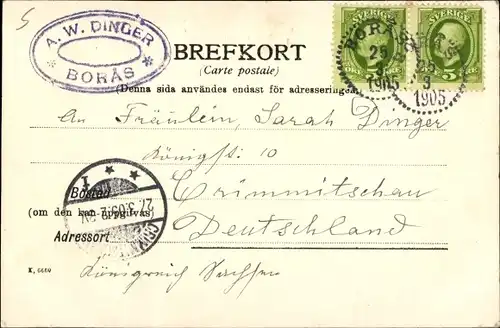 5
A. W. DINGER
BORÅS
BREFKORT
(Carte postale)
SVERIGE
SVERIGE
BORÅS
25
3
1905
25
3
1905
(Denna sida användes endast för adresseringen.)
An Fräulein, Sarah Dinger
Königstr: 10
Bostad
(om den kan uppgifvas)
Crimmitschau
Adressort
Deutschland
K, 6660
Königreich Sachsen